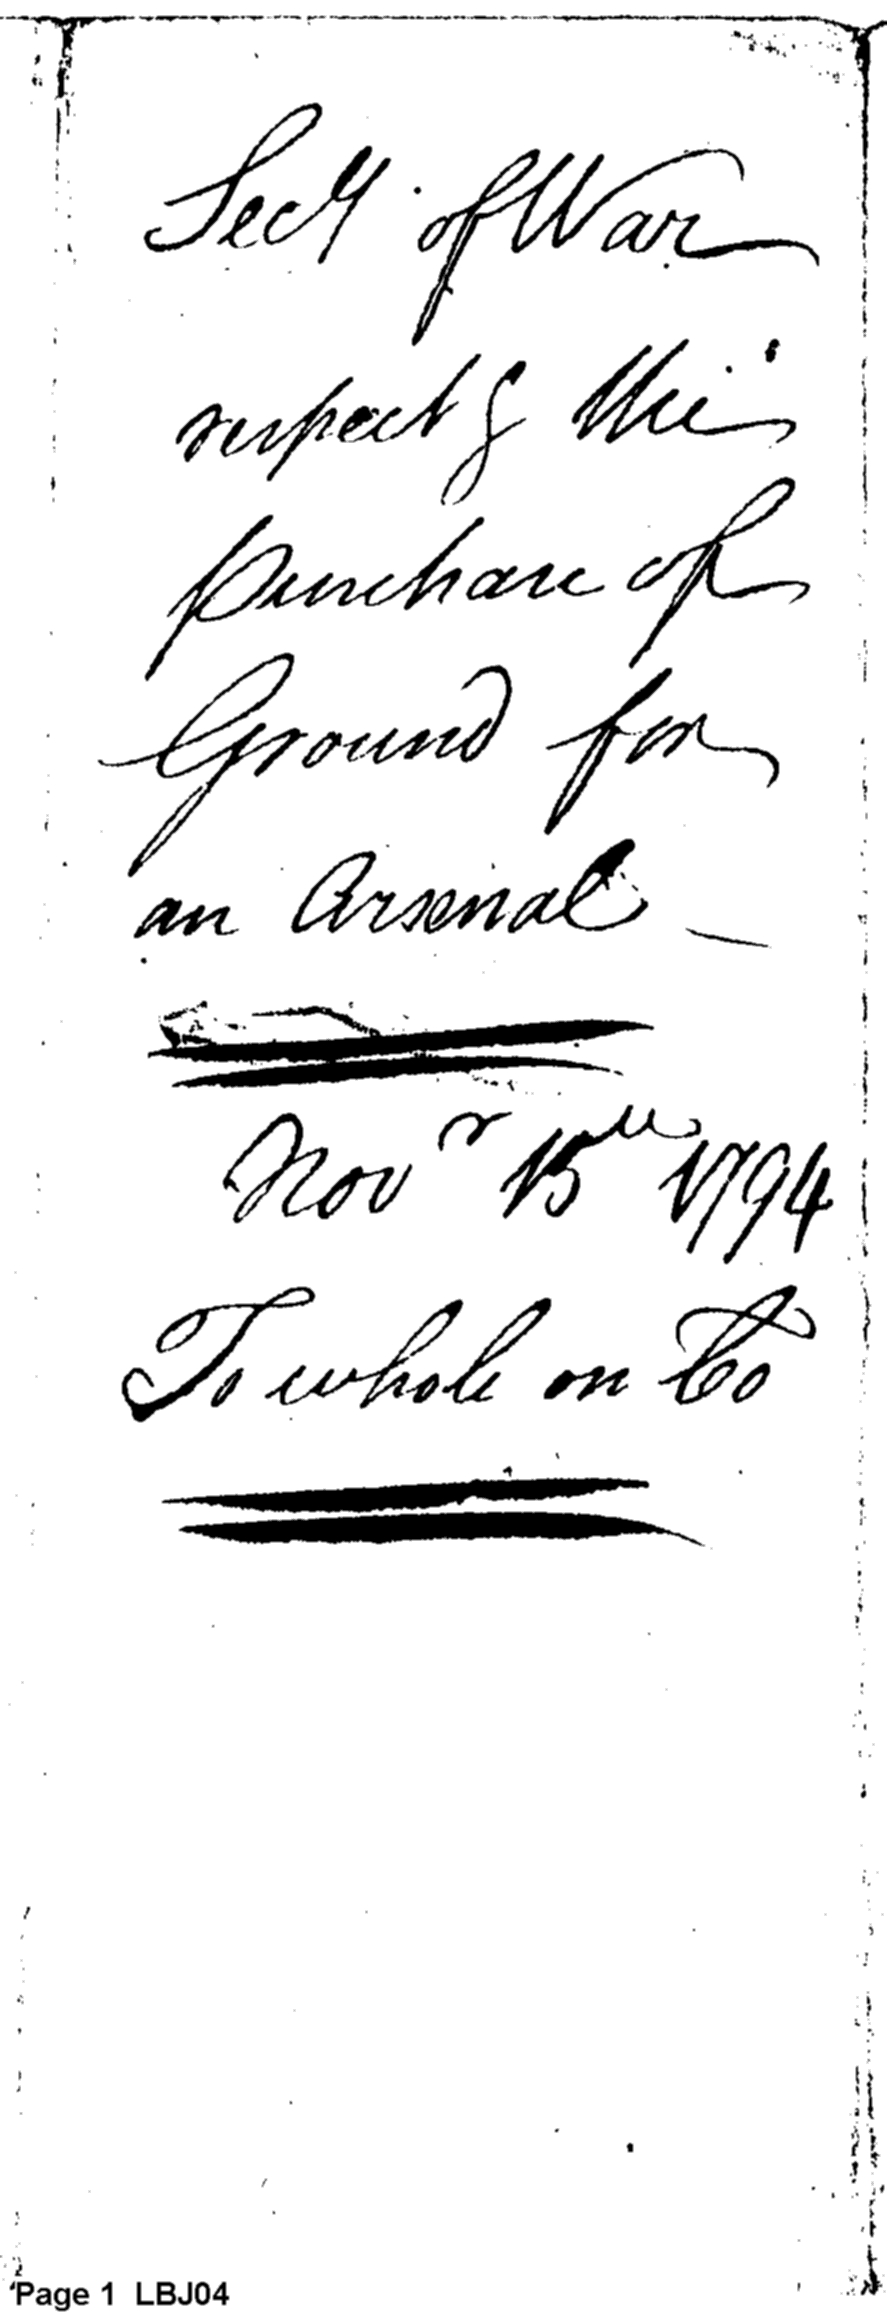 Secy of War
respectg the
purchase of
Ground for
an Arsenal –
Novr 15th 1794
To whole on Co
Page 1 LBJ04